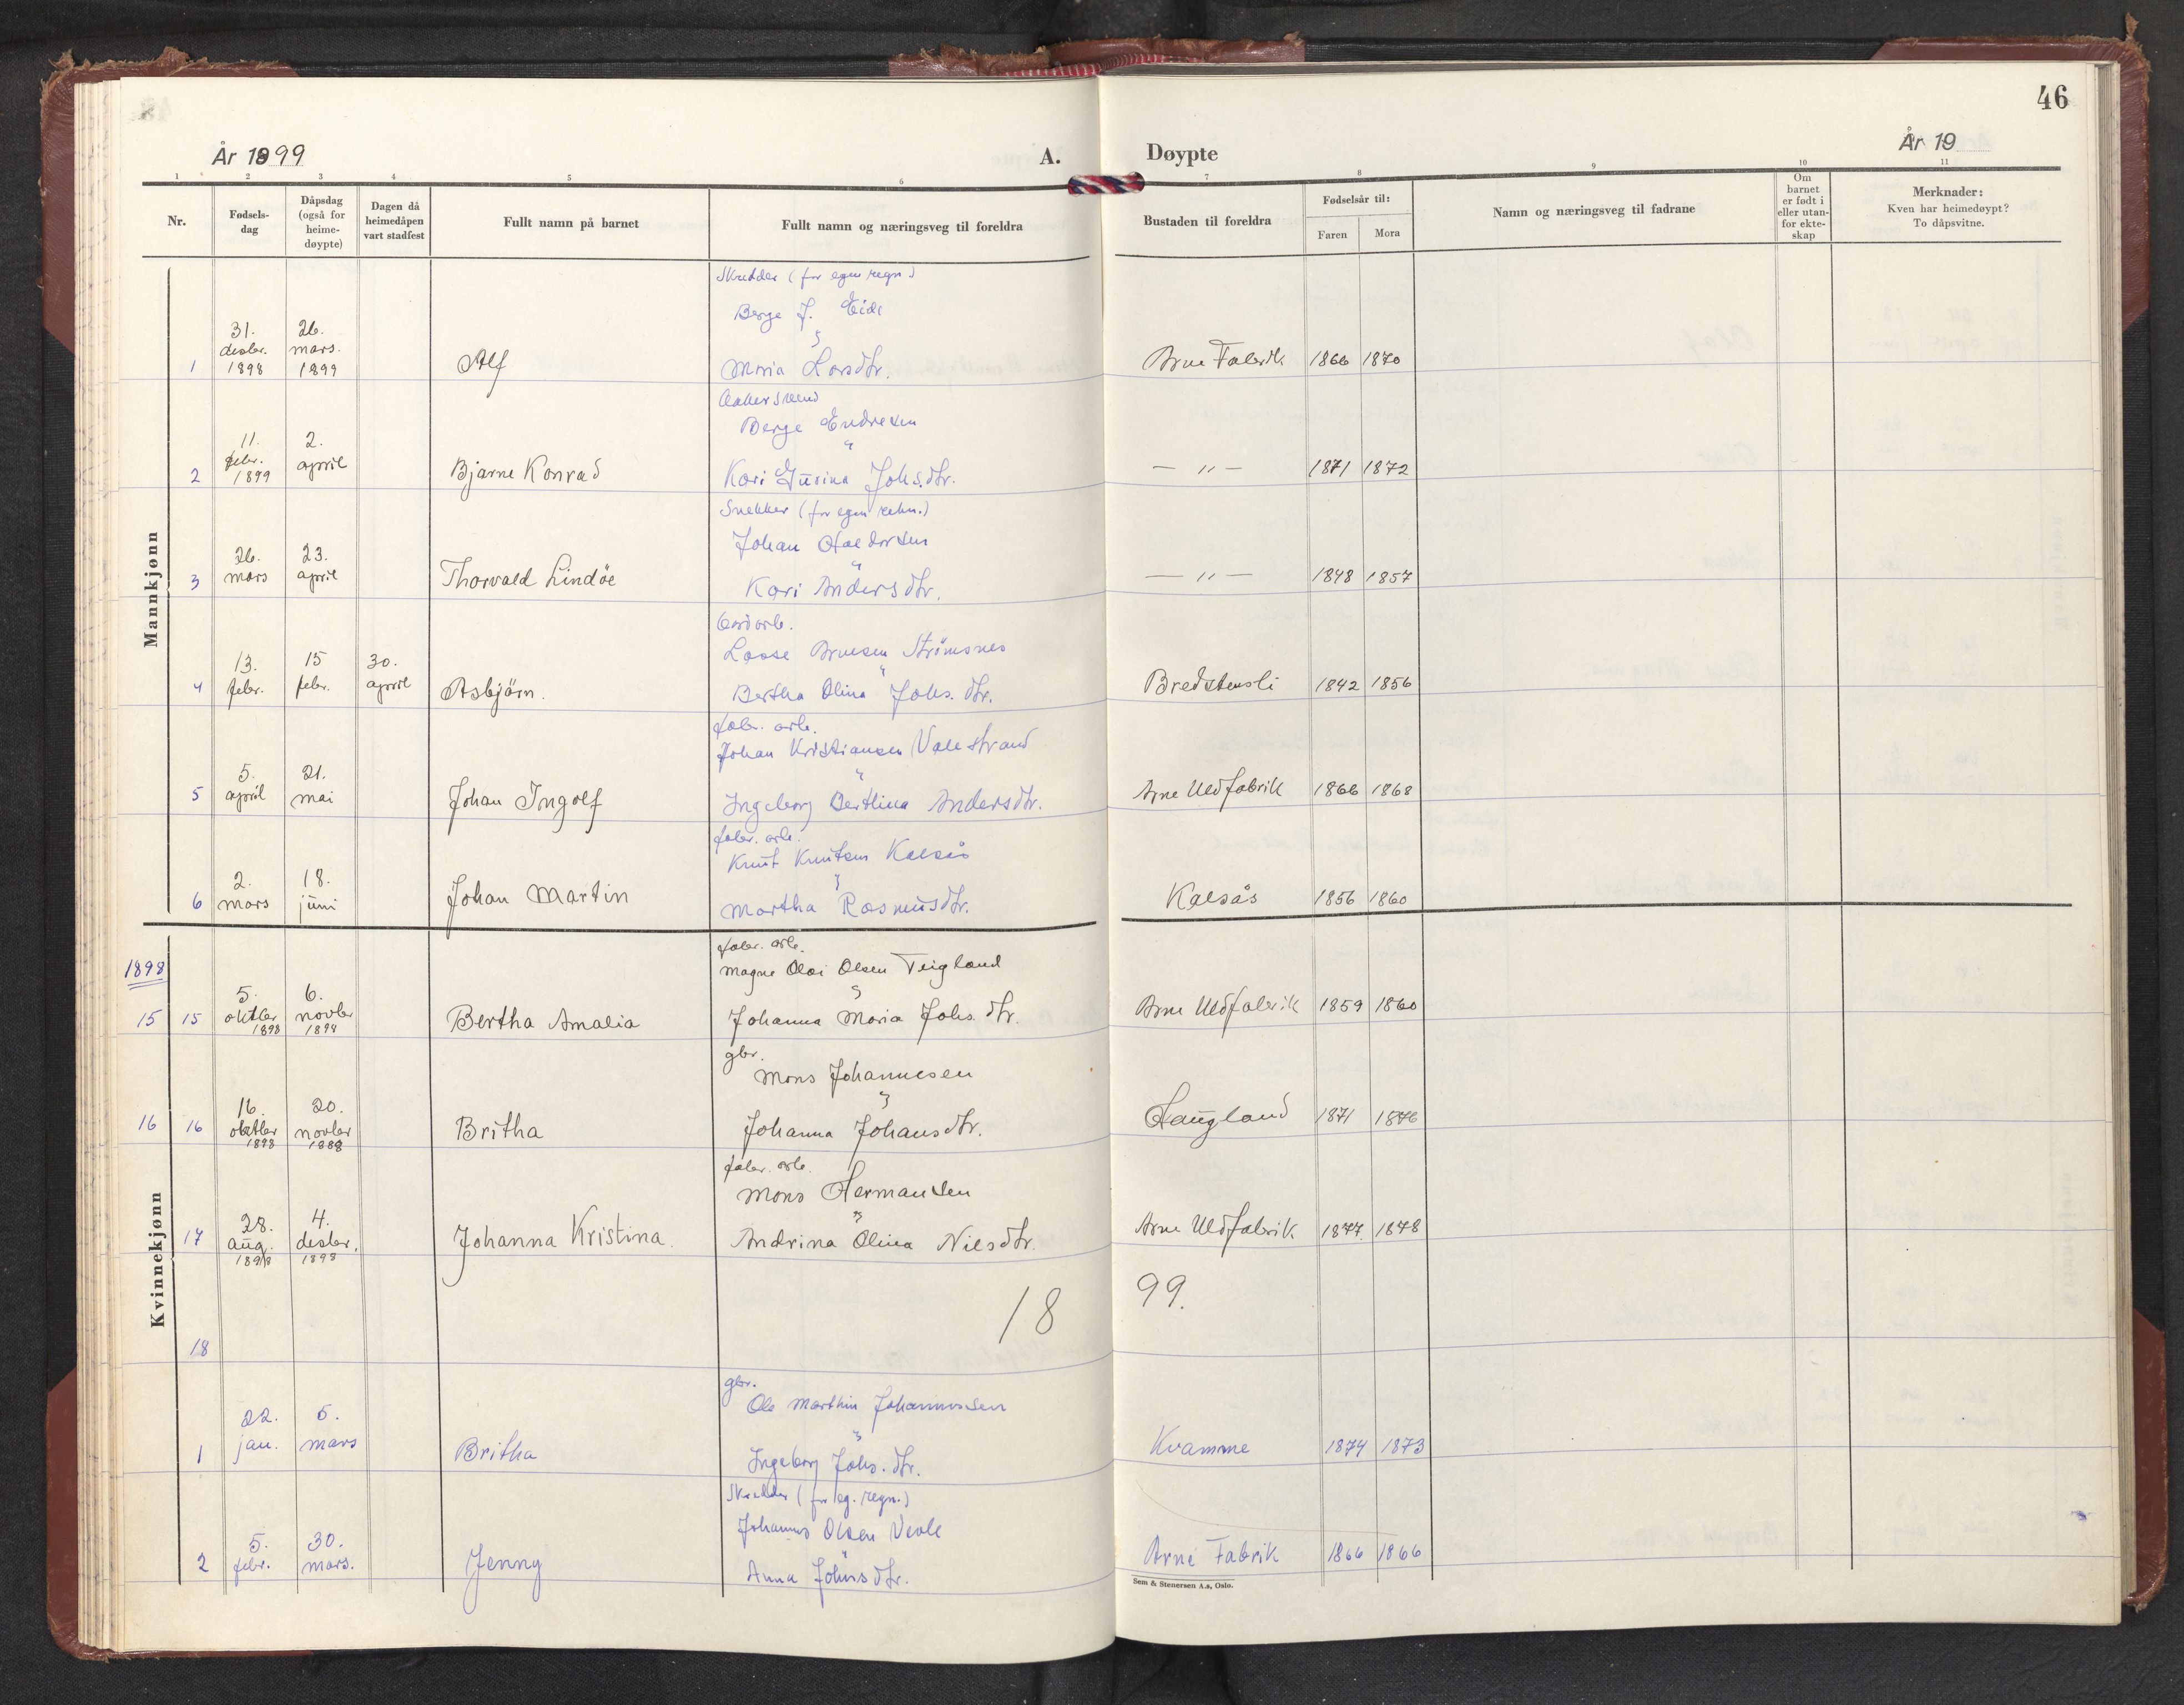 46
År 1899
A.
Døypte
År 19
1 2 3 4 5 6 7 8 9 10 11
Nr.
Fødsels-
dag
Dåpsdag
(også for
heime-
døypte)
Dagen då
heimedåpen
vart stadfest
Fullt namn på barnet
Fullt namn og næringsveg til foreldra
Bustaden til foreldra
Fødselsår til:
Faren
Mora
Namn og næringsveg til fadrane
Om
barnet
er født i
eller utan-
for ekte-
skap
Merknader:
Kven har heimedøypt?
To dåpsvitne.
Mannkjønn
Skredder (for egen regn)
Berge J. Eide
31. 26.
desbr. mars.
1 1898 1899 Alf Maria Larsdtr. Arne Fabrik 1866 1870
Berge Endresen
"
11. 2.
febr. april
2 1899 Bjarne Konrad Kari Gurina Johs.dtr. — " — 1871 1872
Snekker (for egen rekn.)
Johan Haldorsen
"
26. 23.
3 mars april Thorvald Lindöe Kari Andersdtr. — " — 1848 1857
Lasse Arnesen Strömsnes
"
13. 15 30.
4 febr. febr. april Asbjörn. Bertha Olina Johs. dtr. Bredstensli 1842 1856
fabr. arb.
Johan Kristiansen Valestrand
"
5. 21.
5 april mai Johan Ingolf Ingeborg Bertina Andersdtr. Arne Uldfabrik 1866 1868
fabr. arb.
Knut Knutsen Kalsås
"
2. 18.
6 mars juni Johan Martin Martha Rasmusdtr. Kalsås 1856 1860
Kvinnekjønn
1898
fabr. arb.
Magne Olai Olsen Teigland
"
5. 6.
15 15 oktbr novbr Bertha Amalia Johanna Maria Johs. dtr. Arne Uldfabrik 1859 1860
1898 1898
gbr.
Mons Johannesen
"
16. 20.
16 16 oktbr novbr Britha Johanna Johansdtr. Haugland 1871 1876
1898 1888
fabr. arb.
Mons Hermansen
"
28. 4.
17 aug. desbr. Johanna Kristina Andrina Olina Nilsdtr. Arne Uldfabrik 1877 1878
1898 1898
18 99.
18
gbr.
Ole Marthin Johannessen
"
22. 5.
1 jan. mars Britha Ingeborg Johs. dtr. Kvamme 1874 1873
Skredder (for eg. regn.)
Johannes Olsen Veole
"
5. 30.
2 febr. mars. Jenny Anna Johnsdtr. Arne Fabrik 1866 1866
Sem & Stenersen A.s, Oslo.